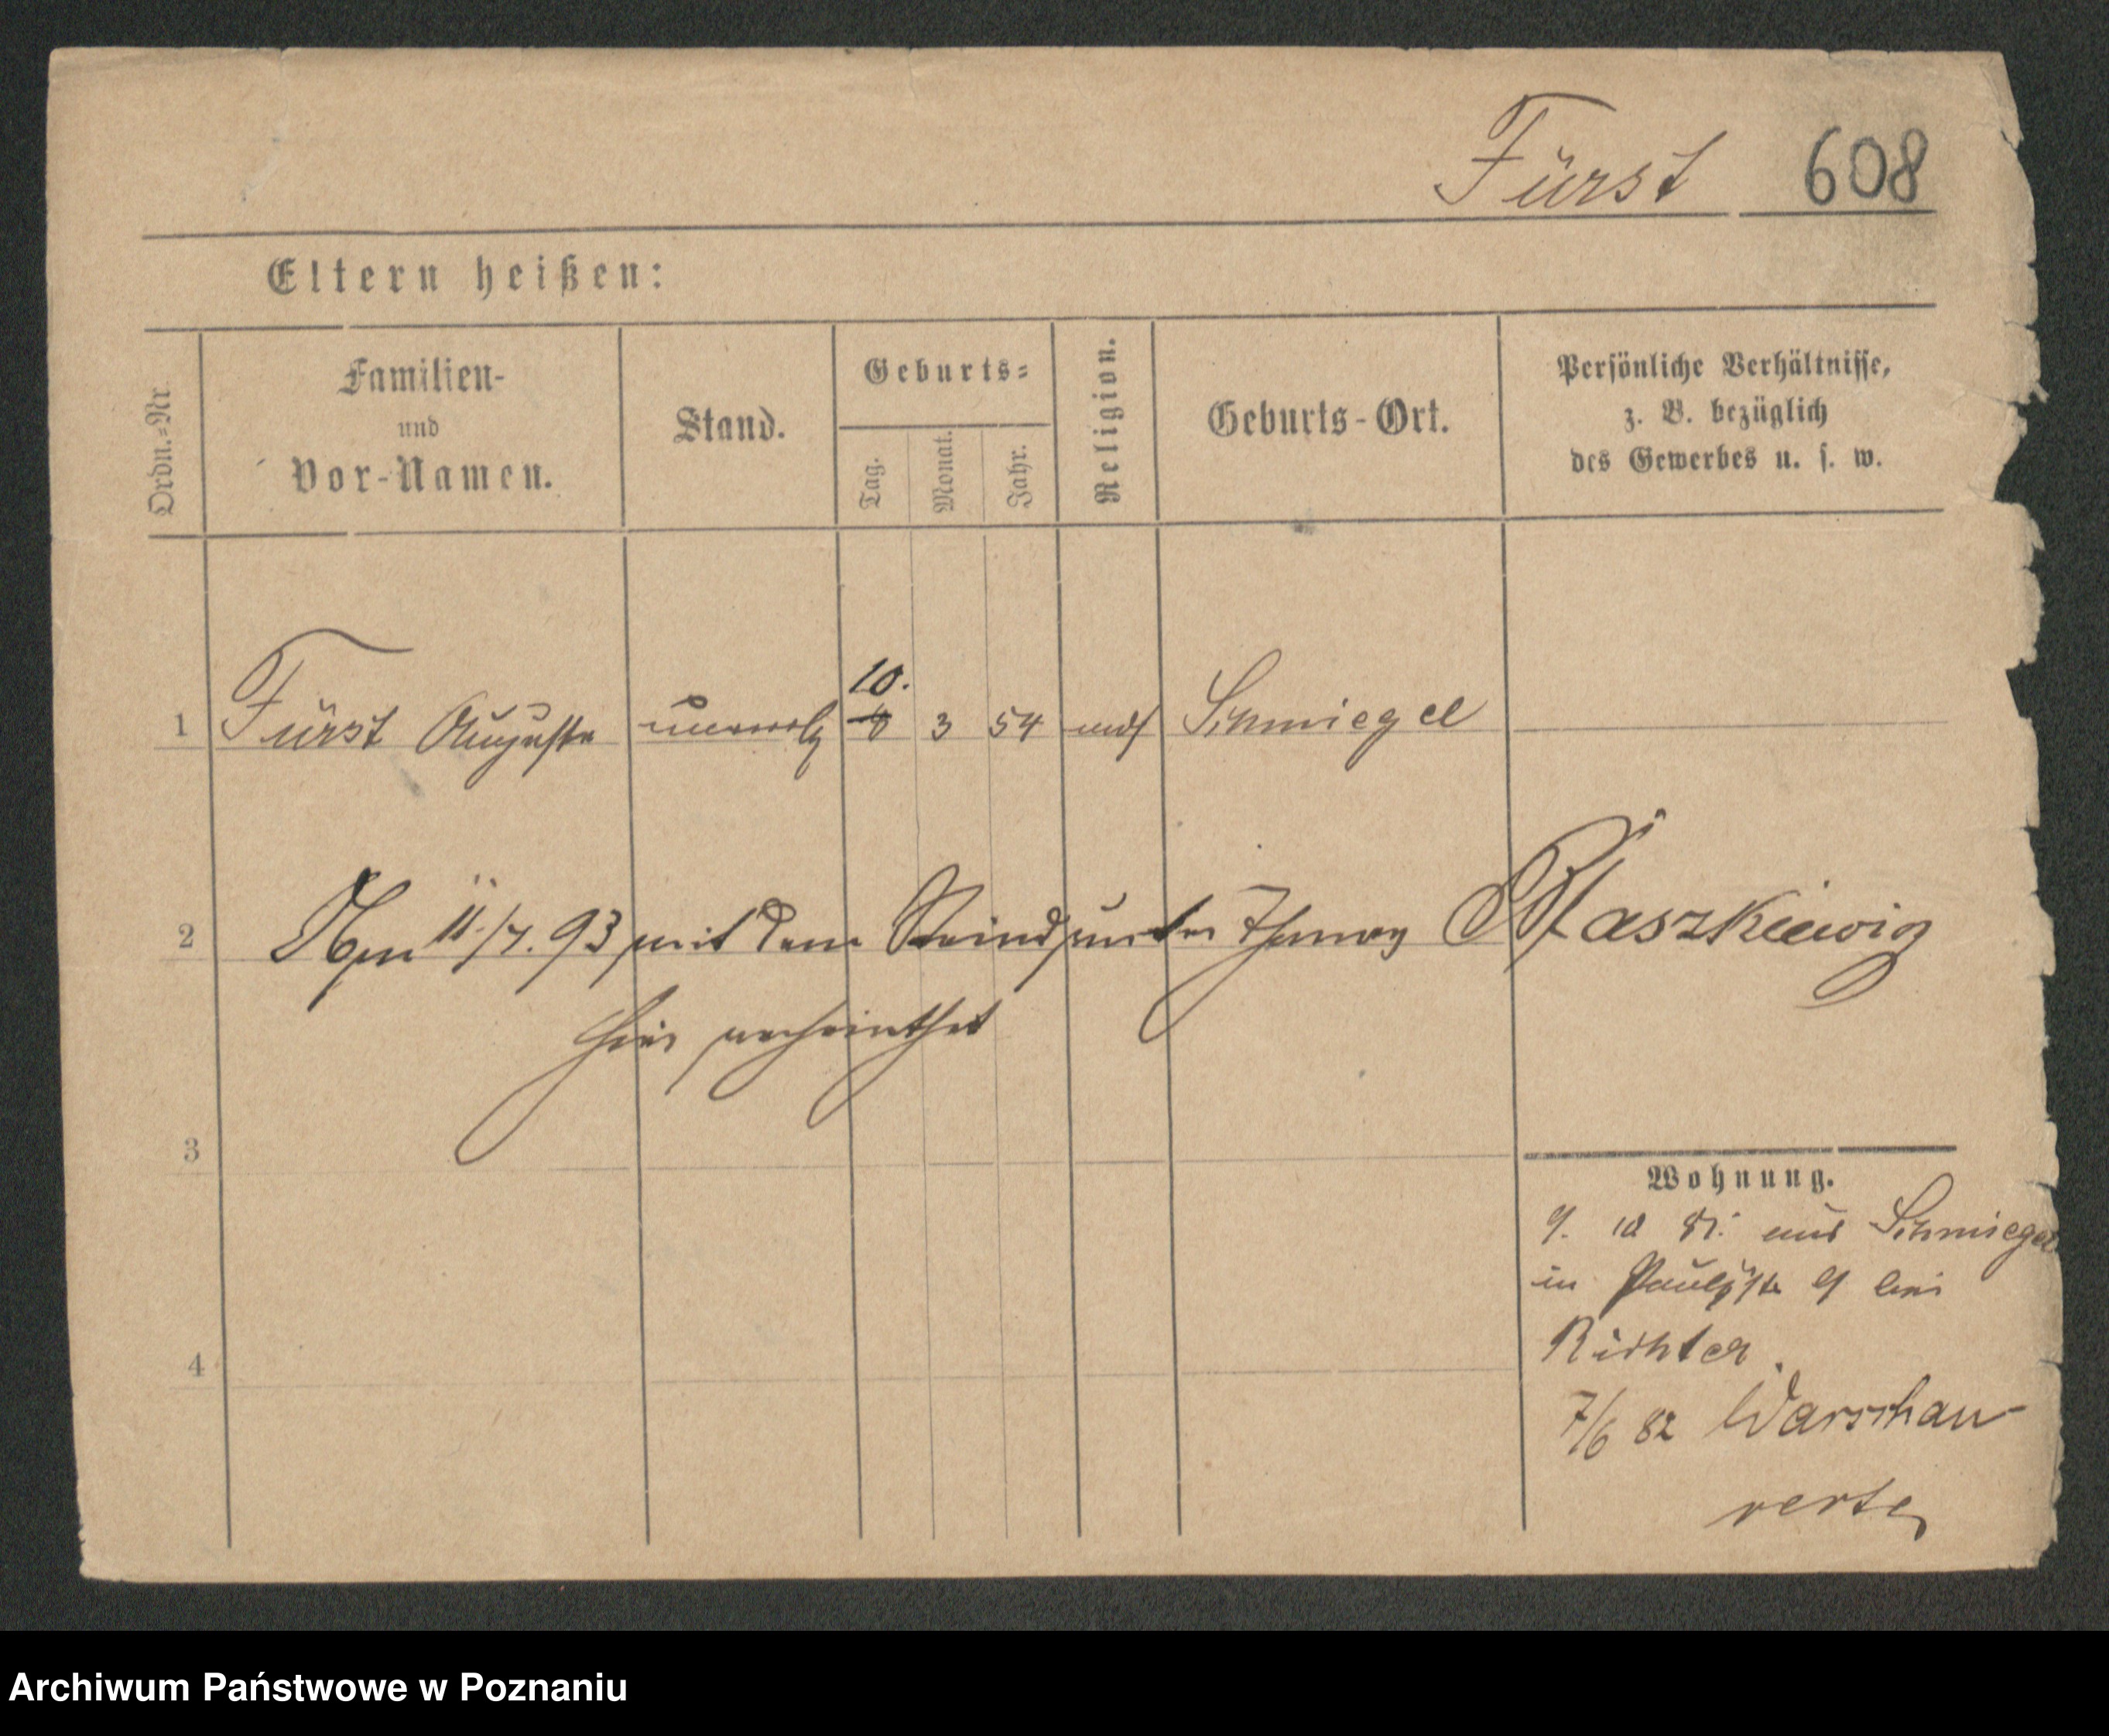 Fürst 608
Eltern heißen:
Ordn.-Nr.
Familien-
und
Vor-Namen.
Stand.
Geburts-
Tag.
Monat.
Jahr.
Religion.
Geburts-Ort.
Persönliche Verhältnisse,
z. B. bezüglich
des Gewerbes u. s. w.
10.
1 Fürst Auguste unverehl 8 3 54 Schmiegel
2 Am 11./7. 93 mit dem Thomas Blaszkiewiz
hier verheirathet
3
Wohnung.
9. 10 81. aus Schmiegel
in Paulystr 9 bei
Richter
4
7/6 82 Warschau
verte
Archiwum Państwowe w Poznaniu